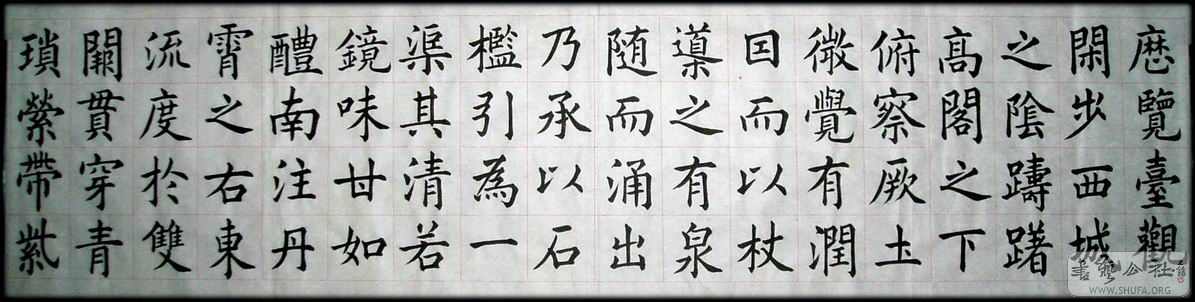 歷覽臺觀
閑步西城
之陰躊躇
高閣之下
俯察厥土
微覺有潤
因而以杖
導之有泉
随而涌出
乃承以石
檻引為一
渠其清若
鏡味甘如
醴南注丹
霄之右東
流度於雙
闕貫穿青
瑣縈帶紫
書藝公社
WWW.SHUFA.ORG